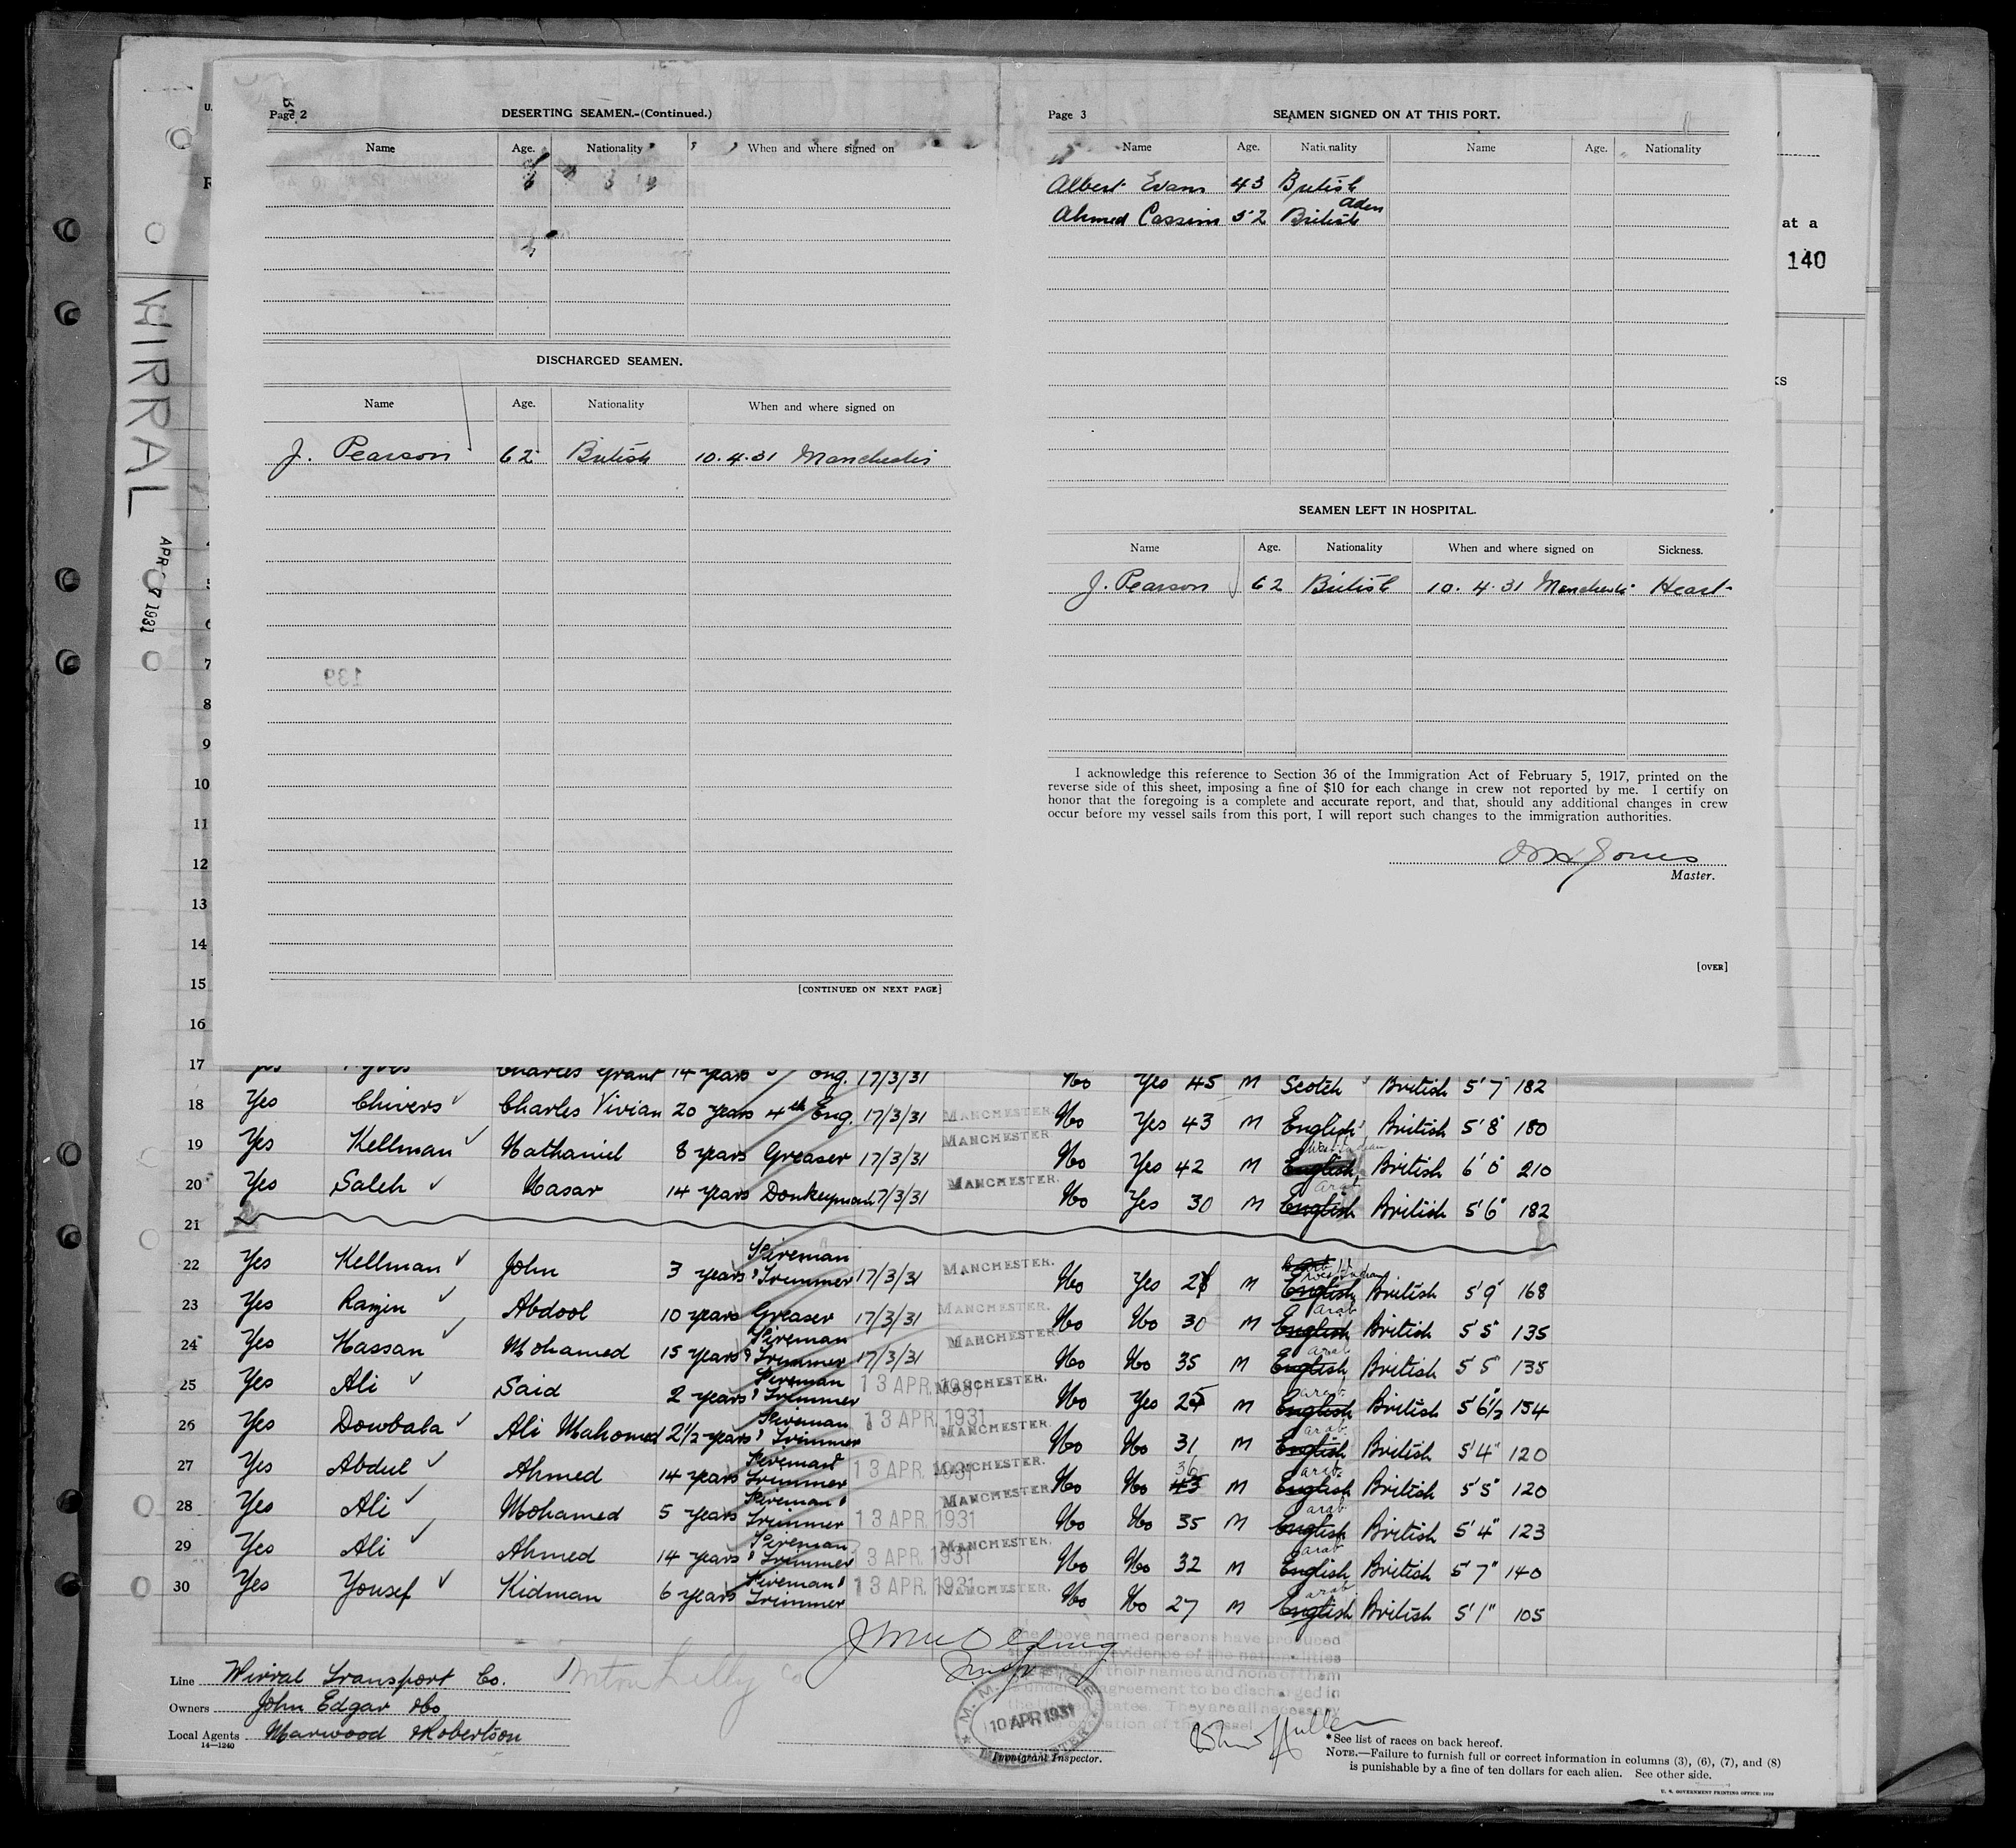 WIRRAL
APR 1931
at a
140
Page 2
DESERTING SEAMEN.-(Continued.)
Name Age. Nationality When and where signed on
DISCHARGED SEAMEN.
Name Age. Nationality When and where signed on
J. Pearson 62 British 10.4.31 Manchester
139
[CONTINUED ON NEXT PAGE]
Page 3
SEAMEN SIGNED ON AT THIS PORT.
Name Age. Nationality Name Age. Nationality
Albert Evans 43 British
Aden
Ahmed Cassim 52 British
SEAMEN LEFT IN HOSPITAL.
Name Age. Nationality When and where signed on Sickness.
J. Pearson 62 British 10.4.31 Manchester Heart
I acknowledge this reference to Section 36 of the Immigration Act of February 5, 1917, printed on the
reverse side of this sheet, imposing a fine of $10 for each change in crew not reported by me. I certify on
honor that the foregoing is a complete and accurate report, and that, should any additional changes in crew
occur before my vessel sails from this port, I will report such changes to the immigration authorities.
Jones
Master.
[OVER]
5
6
7
8
9
10
11
12
13
14
15
16
17 Charles Grant 14 years Eng. 17/3/31 No Yes 45 M Scotch British 5'7" 182
18 Yes Chivers Charles Vivian 20 years 4th Eng. 17/3/31 MANCHESTER No Yes 43 M English British 5'8" 180
19 Yes Kellman Nathaniel 8 years Greaser 17/3/31 MANCHESTER No Yes 42 M English West Indian British 6'0" 210
20 Yes Saleh Nasar 14 years Donkeyman 17/3/31 MANCHESTER. No Yes 30 M English Arab British 5'6" 182
21
22 Yes Kellman John 3 years Fireman & Trimmer 17/3/31 MANCHESTER. No Yes M English West Indian British 5'9" 168
23 Yes Ramjin Abdool 10 years Greaser 17/3/31 MANCHESTER. No No 30 M English Arab British 5'5" 135
24 Yes Hassan Mohamed 15 years Fireman & Trimmer 17/3/31 MANCHESTER No No 35 M English Arab British 5'5" 135
25 Yes Ali Said 2 years Fireman & Trimmer 13 APR. 1931 MANCHESTER. No Yes 25 M English Arab British 5'6½" 154
26 Yes Dowbala Ali Mahomed 2½ years Fireman & Trimmer 13 APR. 1931 MANCHESTER. No No 31 M English Arab British 5'4" 120
27 Yes Abdul Ahmed 14 years Fireman & Trimmer 13 APR. 1931 MANCHESTER. No No 43 36 M English Arab British 5'5" 120
28 Yes Ali Mohamed 5 years Fireman & Trimmer 13 APR. 1931 MANCHESTER No No 35 M English Arab British 5'4" 123
29 Yes Ali Ahmed 14 years Fireman & Trimmer 13 APR. 1931 MANCHESTER. No No 32 M English Arab British 5'7" 140
30 Yes Yousef Kidman 6 years Fireman & Trimmer 13 APR. 1931 MANCHESTER. No No 27 M English Arab British 5'1" 105
Line Wirral Transport Co.
Owners John Edgar & Co
Local Agents Marwood & Robertson
14—1240
10 APR 1931
Immigrant Inspector.
above named persons have produced
evidence of the nationalities
their names and none of them
agreement to be discharged in
States. They are all necessary
* See list of races on back hereof.
NOTE.—Failure to furnish full or correct information in columns (3), (6), (7), and (8)
is punishable by a fine of ten dollars for each alien. See other side.
U. S. GOVERNMENT PRINTING OFFICE: 1930